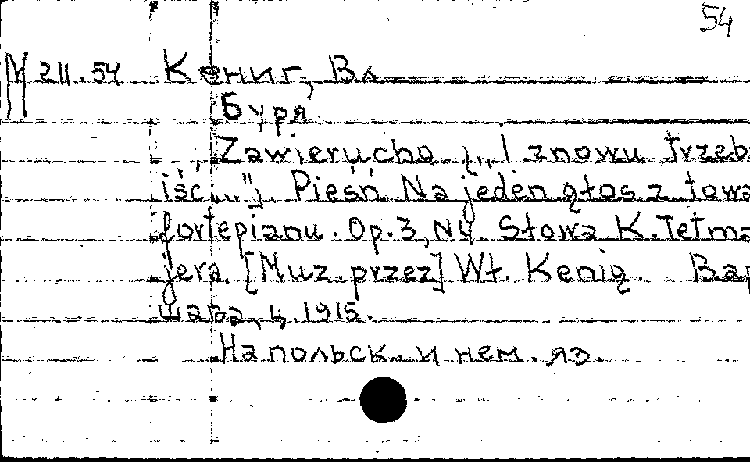 54
М 211.54 Кениг, Вл.
Буря
Zawierucha („I znowu trzeb
iść..."). Pieśń. Na jeden głos z towa
fortepianu. Op. 3, N4. Słowa K. Tetma
jera. [Muz. przez] Wł. Kenig. Вар
шава, ц. 1915.
На польск. и нем. яз.